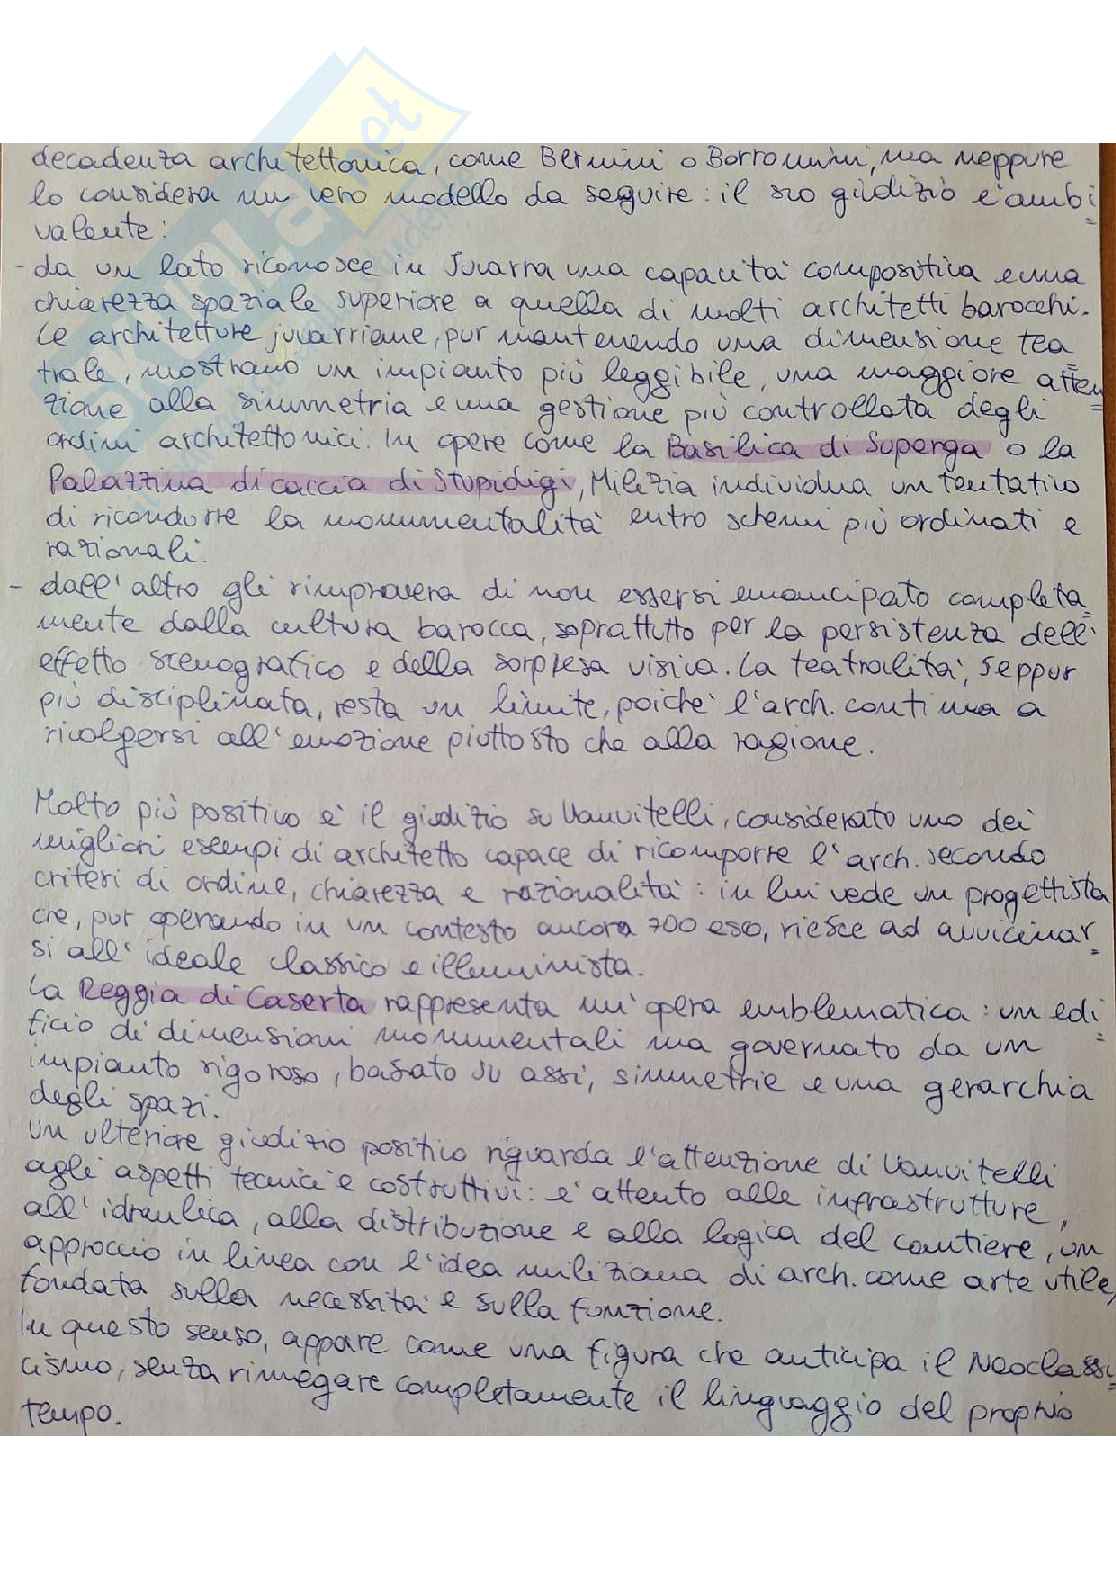 decadenza architettonica, come Bernini o Borromini, ma neppure
lo considera un vero modello da seguire: il suo giudizio è ambi=
valente:
- da un lato riconosce in Juvarra una capacità compositiva e una
chiarezza spaziale superiore a quella di molti architetti barocchi.
Le architetture juvarriane, pur mantenendo una dimensione tea
trale, mostrano un impianto più leggibile, una maggiore atten=
zione alla simmetria e una gestione più controllata degli
ordini architettonici. In opere come la Basilica di Superga o la
Palazzina di caccia di Stupidigi, Milizia individua un tentativo
di ricondurre la monumentalità entro schemi più ordinati e
razionali.
- dall'altro gli rimprovera di non essersi emancipato completa=
mente dalla cultura barocca, soprattutto per la persistenza dell'
effetto scenografico e della sorpresa visiva. La teatralità, seppur
più disciplinata, resta un limite, poiché l'arch. continua a
rivolgersi all'emozione piuttosto che alla ragione.
Molto più positivo è il giudizio su Vanvitelli, considerato uno dei
migliori esempi di architetto capace di ricomporre l'arch. secondo
criteri di ordine, chiarezza e razionalità: in lui vede un progettista
che, pur operando in un contesto ancora 700 esco, riesce ad avvicinar=
si all'ideale classico e illuminista.
La Reggia di Caserta rappresenta un'opera emblematica: un edi=
ficio di dimensioni monumentali ma governato da un
impianto rigoroso, basato su assi, simmetrie e una gerarchia
degli spazi.
Un ulteriore giudizio positivo riguarda l'attenzione di Vanvitelli
agli aspetti tecnici e costruttivi: è attento alle infrastrutture,
all'idraulica, alla distribuzione e alla logica del cantiere, un
approccio in linea con l'idea miliziana di arch. come arte utile,
fondata sulla necessità e sulla funzione.
In questo senso, appare come una figura che anticipa il Neoclassi=
cismo, senza rinnegare completamente il linguaggio del proprio
tempo.